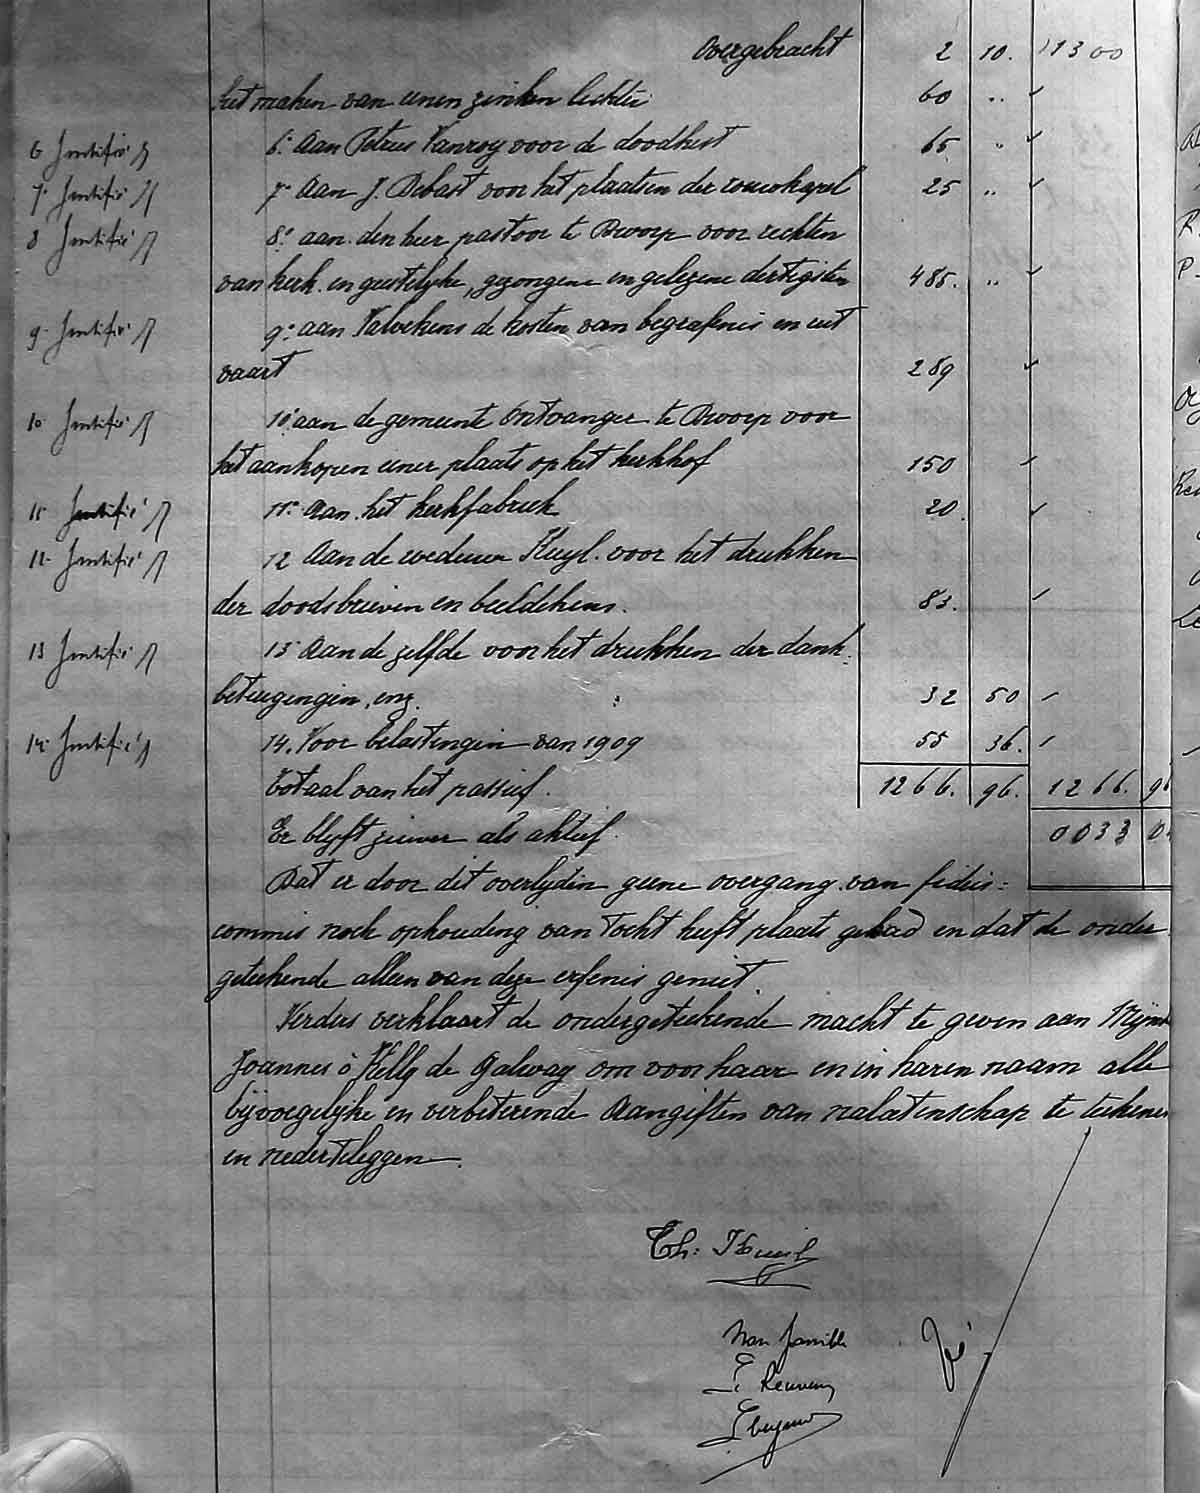 Overgebracht 2 10. 11300
het maken van eenen zinken lichter 60 "
6 Justifié 6° Aan Petrus Vanroy voor de doodkist 65 "
7 Justifié 7° Aan J. Debast voor het plaatsen der rouwkapel 25 "
8 Justifié 8° aan den heer pastoor te Dworp voor rechten
van kerk en geestelijke, gezongene en gelezene dertigsten 485. "
9 Justifié 9° aan Valvekens de kosten van begrafenis en uit
vaart 289
10 Justifié 10° aan de gemeente Ontvanger te Dworp voor
het aankopen eener plaats op het kerkhof 150
11 Justifié 11° Aan het kerkfabriek 20
12 Justifié 12 Aan de weduwe Kuyl. voor het drukken
der doodsbrieven en beeldekens. 83.
13 Justifié 13 Aan de zelfde voor het drukken der dank=
betuigingen, enz. 32 50
14 Justifié 14. Voor belastingen van 1909 55 36.
Totaal van het passief. 1266. 96. 1266. 96
Er blyft zuiver als aktief. 0033 0
Dat er door dit overlyden geene overgang van fideis=
commis noch ophouding van tocht heeft plaats gehad en dat de onder
geteekende alleen van deze erfenis geniet.
Verders verklaart de ondergeteekende macht te geven aan Mijnh
Joannes ò Kelly de Galway om voor haar en in haren naam alle
bijvoegelijke en verbeterende Aangiften van nalatenschap te teekenen
en nederteleggen.
Th: